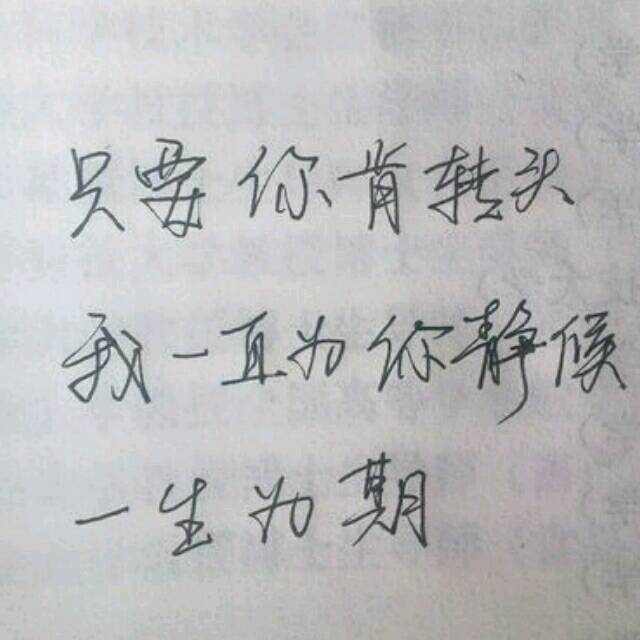 只要你肯转头
我一直为你静候
一生为期